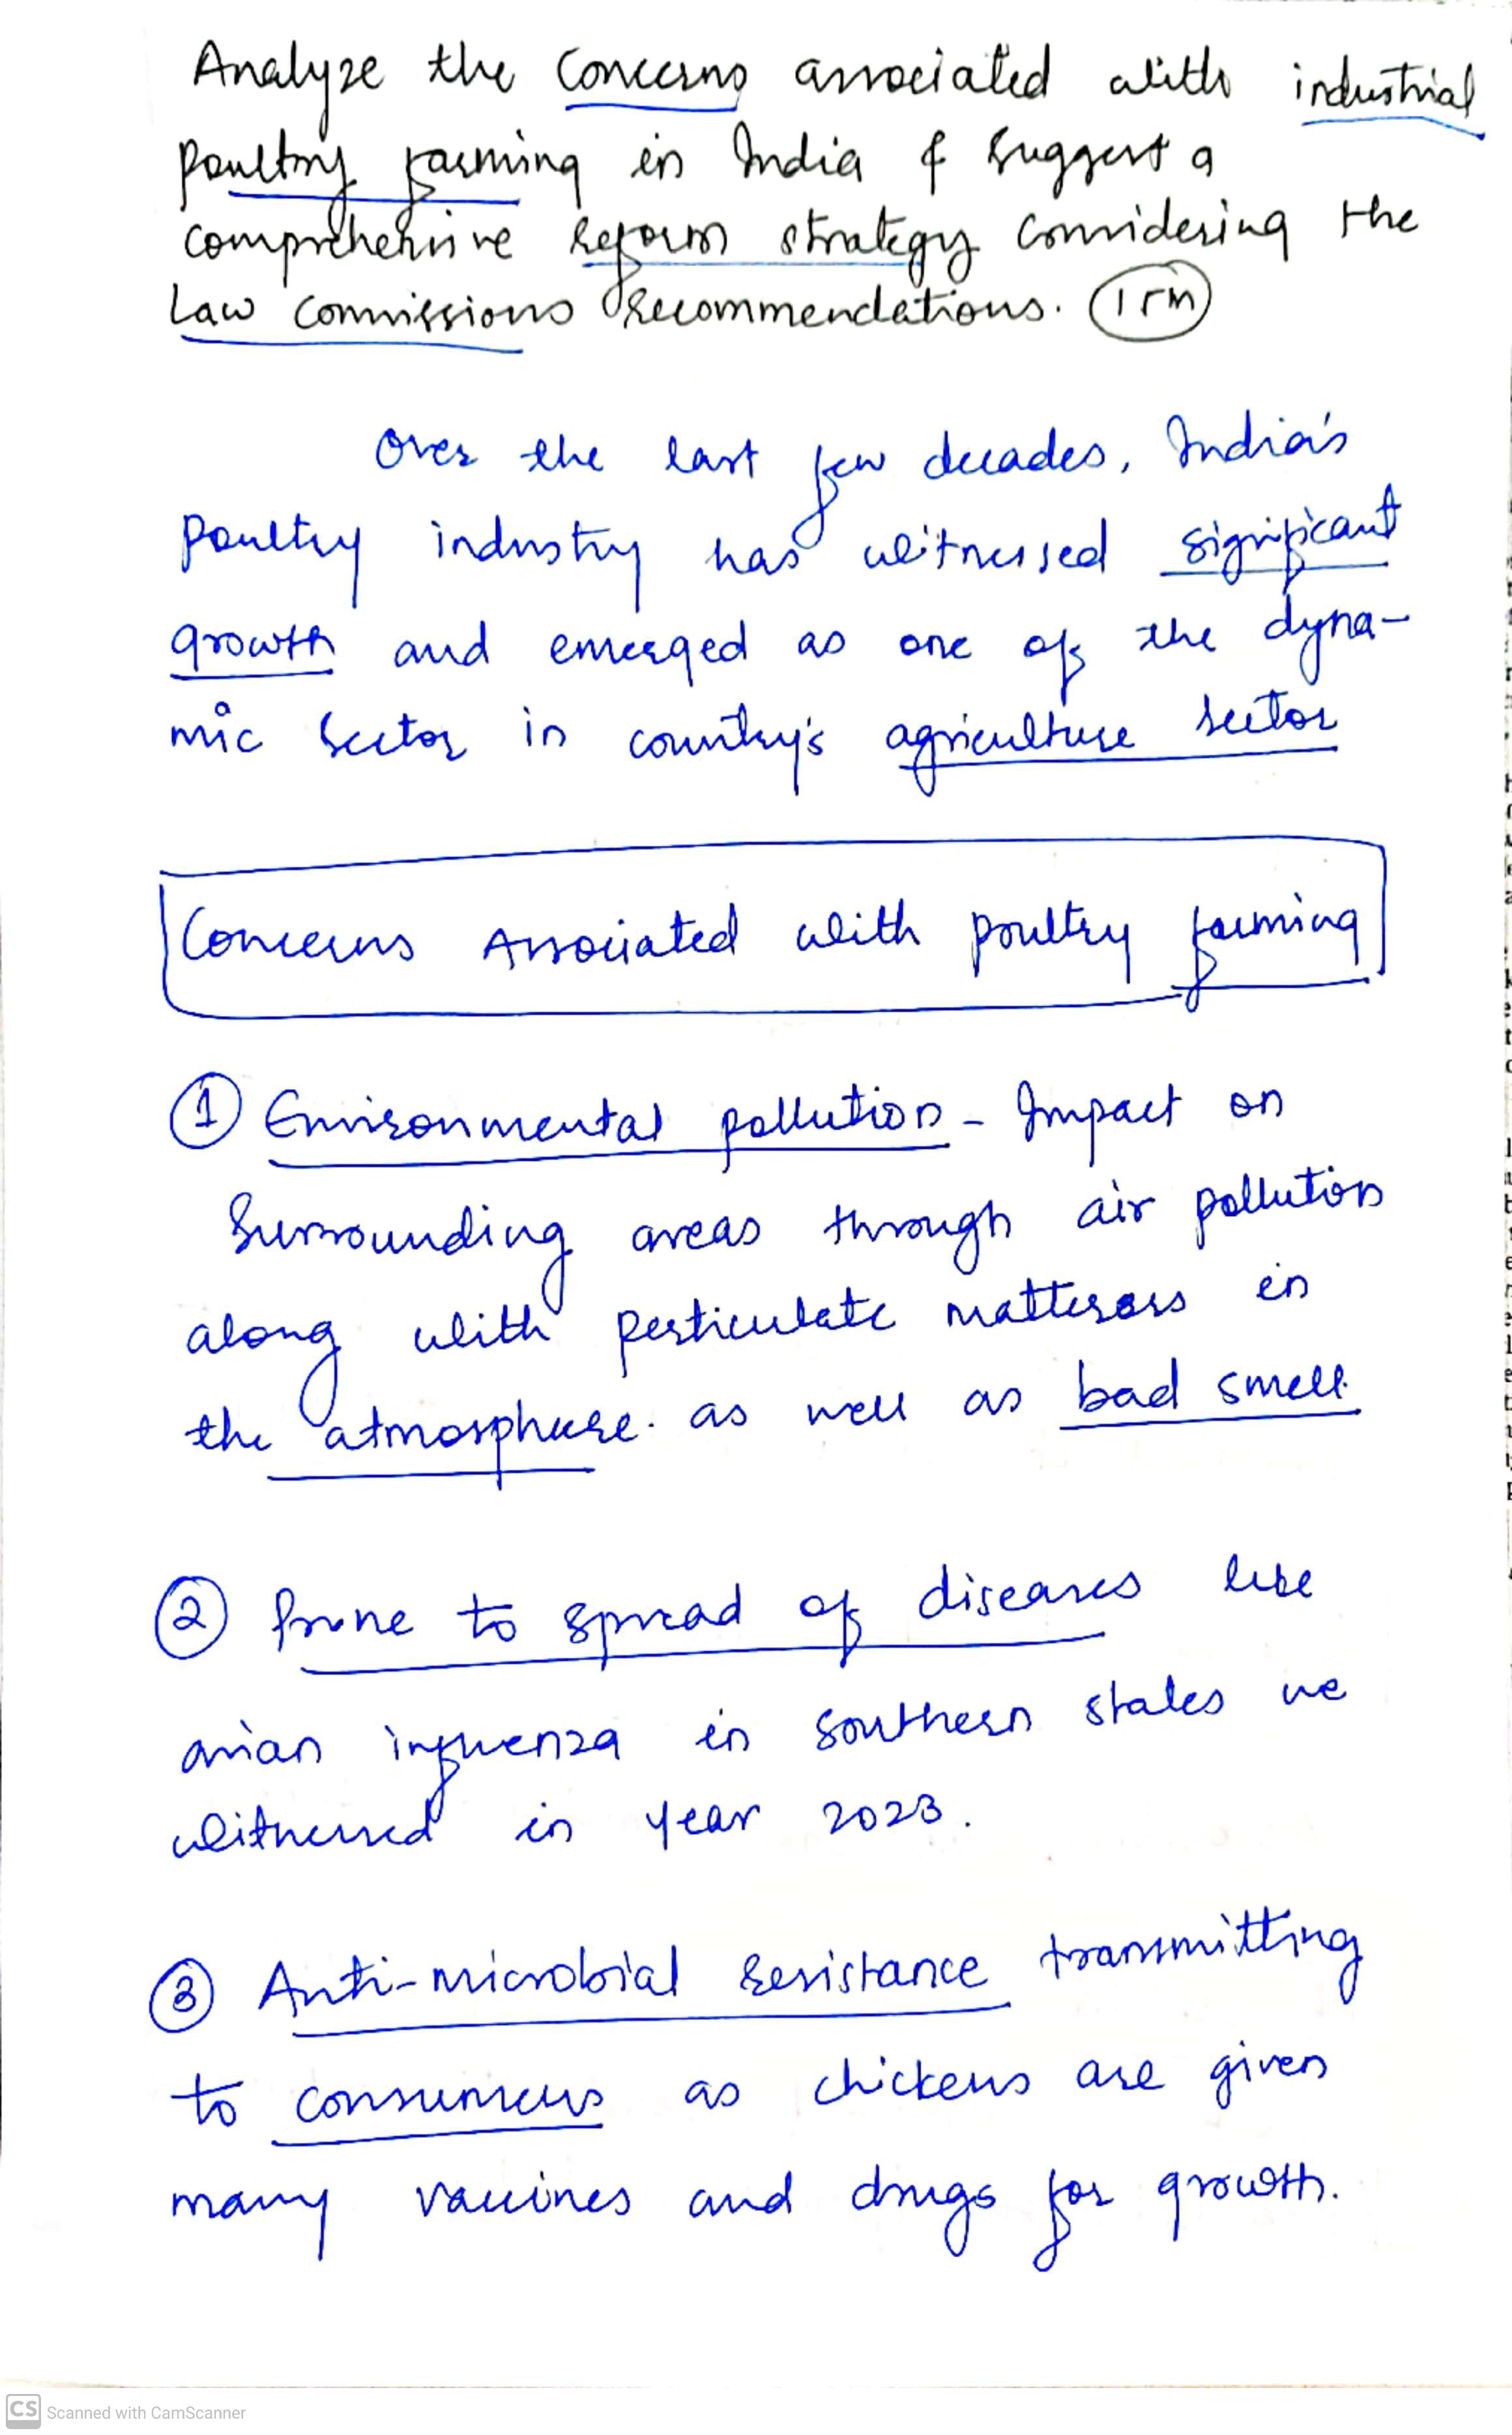 Analyze the Concerns associated with industrial
poultry farming in India & suggest a
comprehensive reform strategy considering the
Law Commissions Recommendations. (15m)
Over the last few decades, India's
Poultry industry has witnessed significant
growth and emerged as one of the dyna-
mic sector in country's agriculture sector
Concerns Associated with poultry farming
① Environmental pollution - Impact on
surrounding areas through air pollution
along with perticulate matterers in
the atmosphere. as well as bad smell.
② Prone to spread of diseases like
avian influenza in southern states we
witnessed in year 2023.
③ Anti-microbial resistance transmitting
to consumers as chickens are given
many vaccines and drugs for growth.
CS Scanned with CamScanner